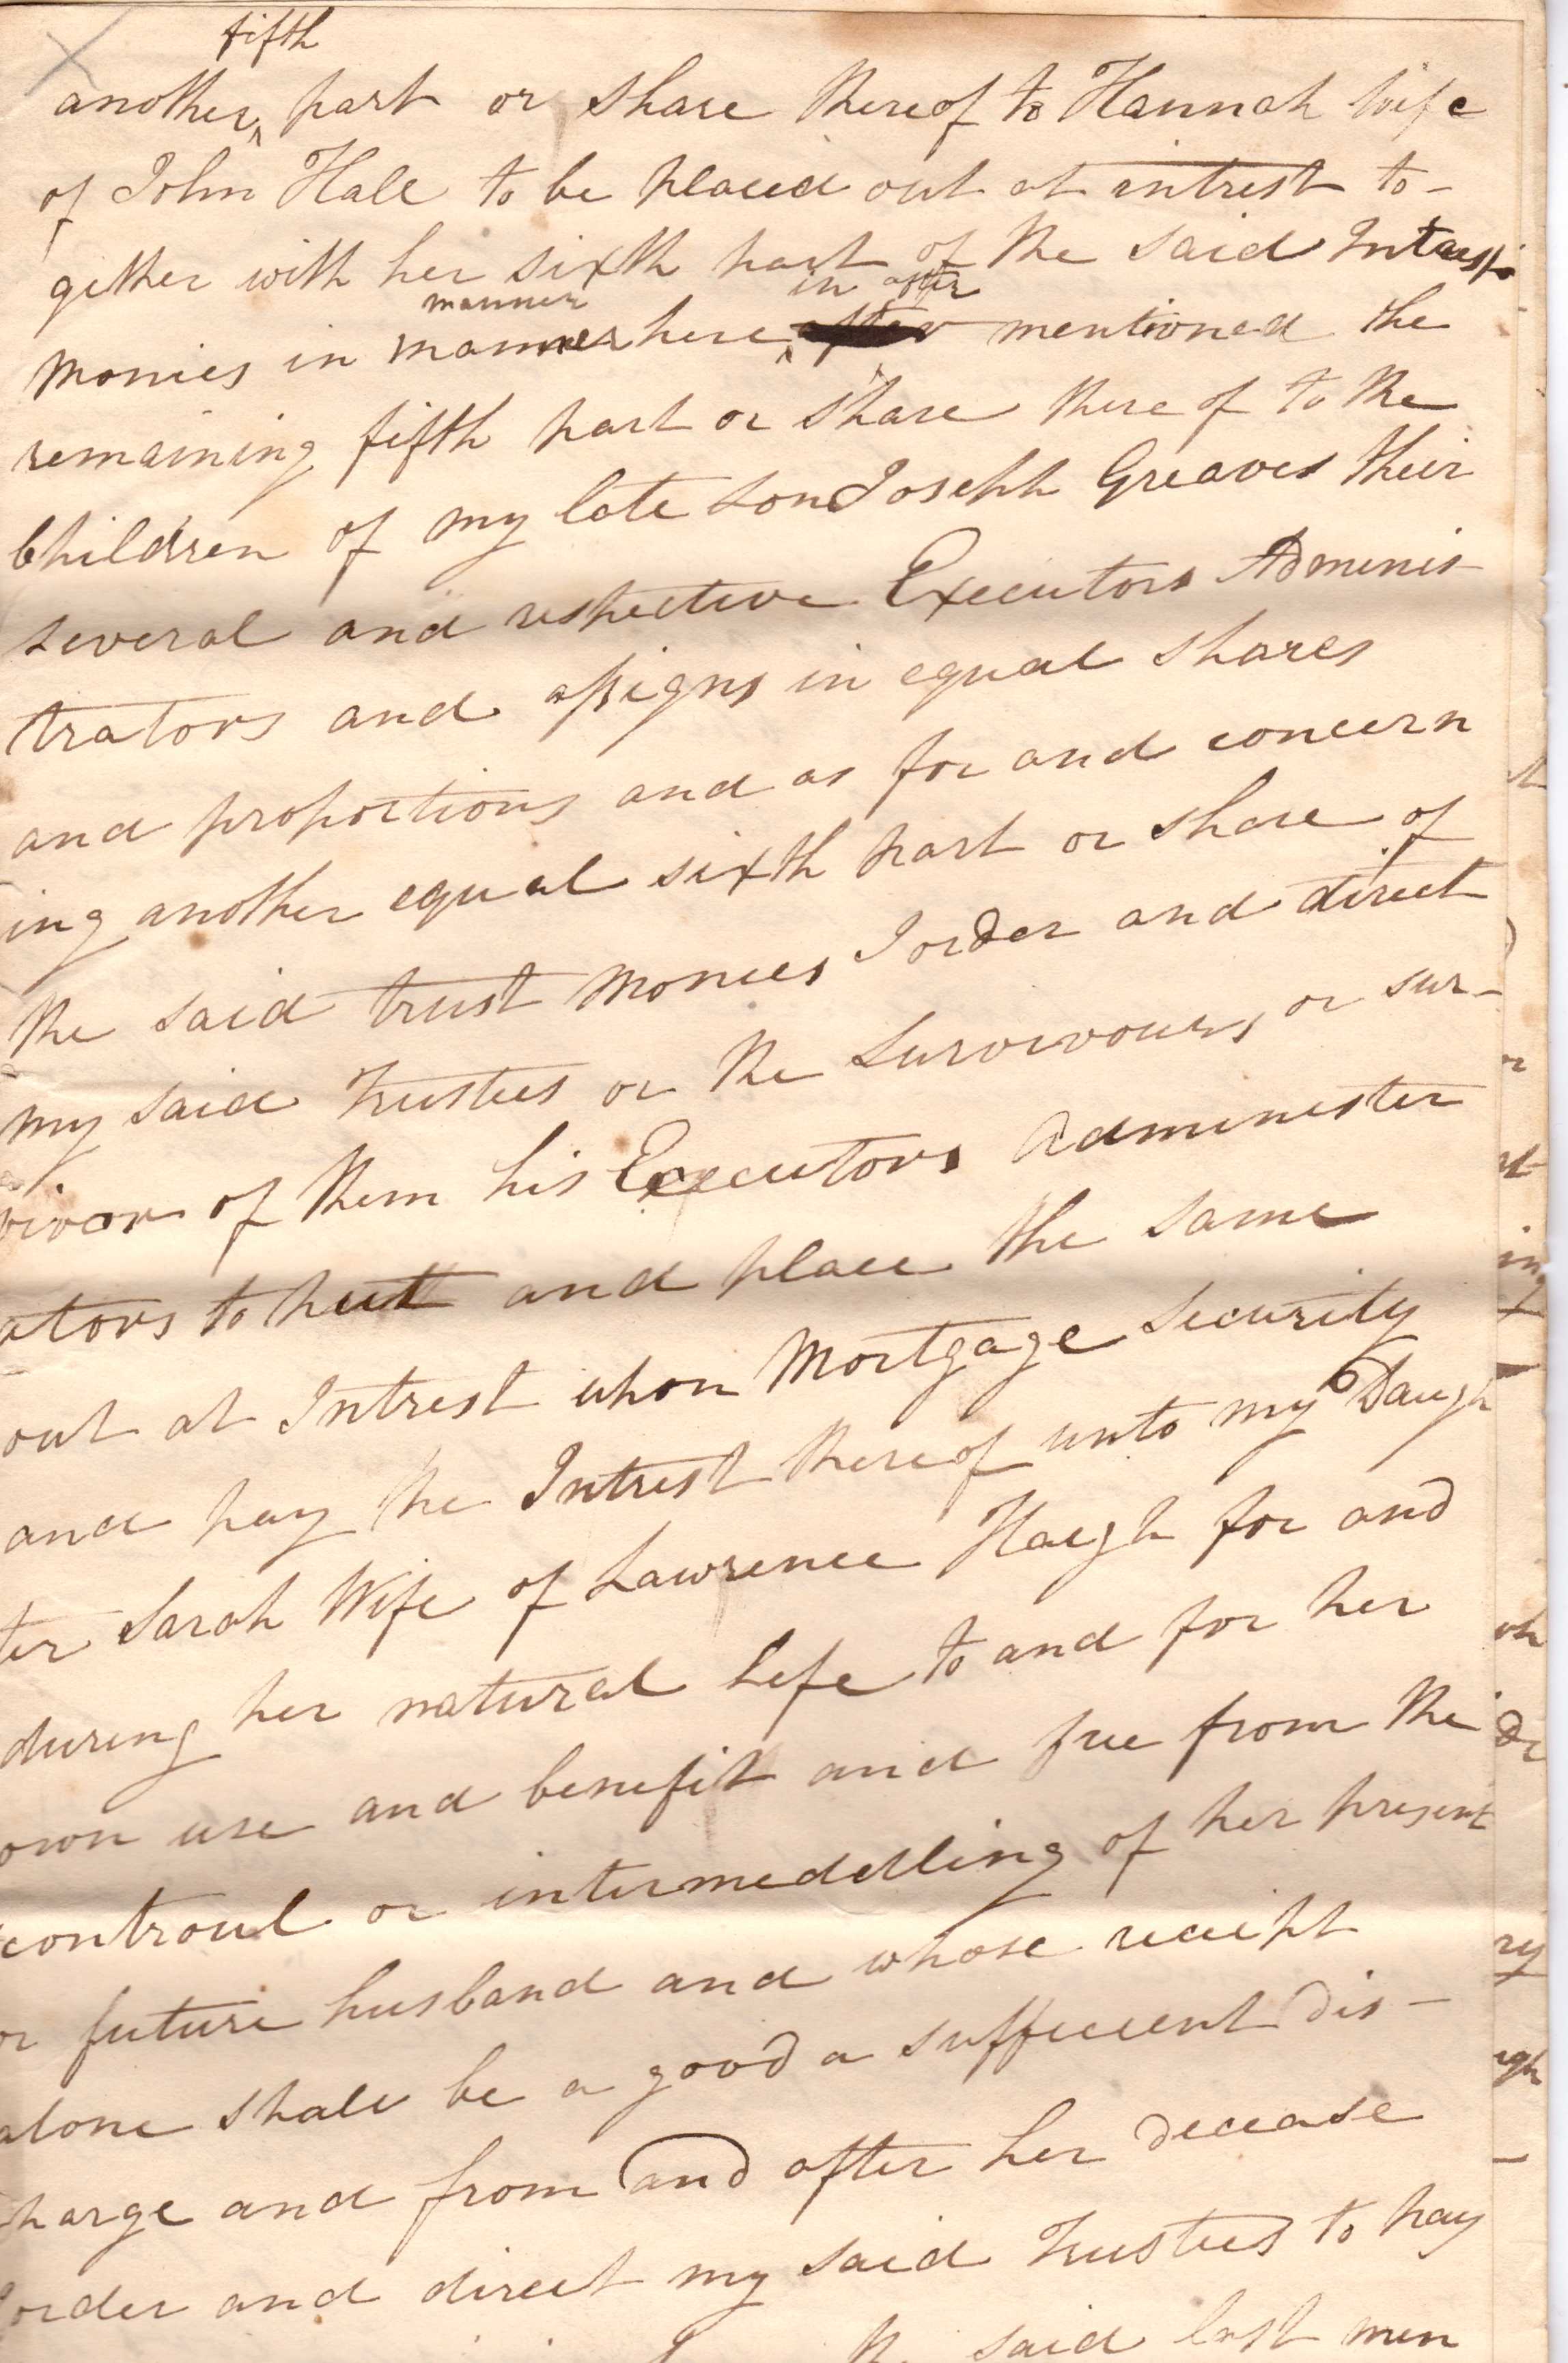 fifth
another, part or share thereof to Hannah Wife
of John Hall to be placed out at intrest to-
gether with her sixth part of the said Intrest
manner in after
Monies in manner here after mentioned the
remaining fifth part or share there of to the
Children of my late son Joseph Greaves their
several and respective Executors Adminis
trators and assigns in equal shares
and proportions and as for and concern
ing another equal sixth part or share of
the said trust Monies I order and direct
my said Trustees or the Survivours or sur-
vivor of them his Executors Administer
ators to put and place the same
out at Intrest upon Mortgage Security
and pay the Intrest thereof unto my Daugh
ter Sarah Wife of Lawrence Haigh for and
during her natural Life to and for her
own use and benefit and free from the
controul or intermeddling of her present
or future husband and whose receipt
alone shall be a good a sufficient dis-
harge and from and after her decease
I order and direct my said Trustees to pay
said last men